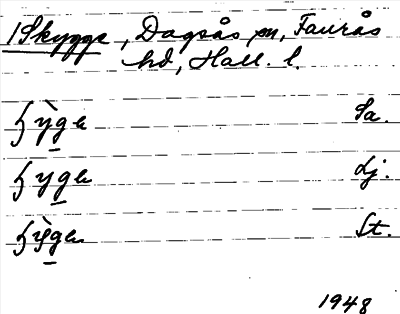 1 Skygge, Dagsås sn, Faurås
hd, Hall. l.
ʃỳge Sa.
ʃyge Lj.
ʃỳge St.
1948